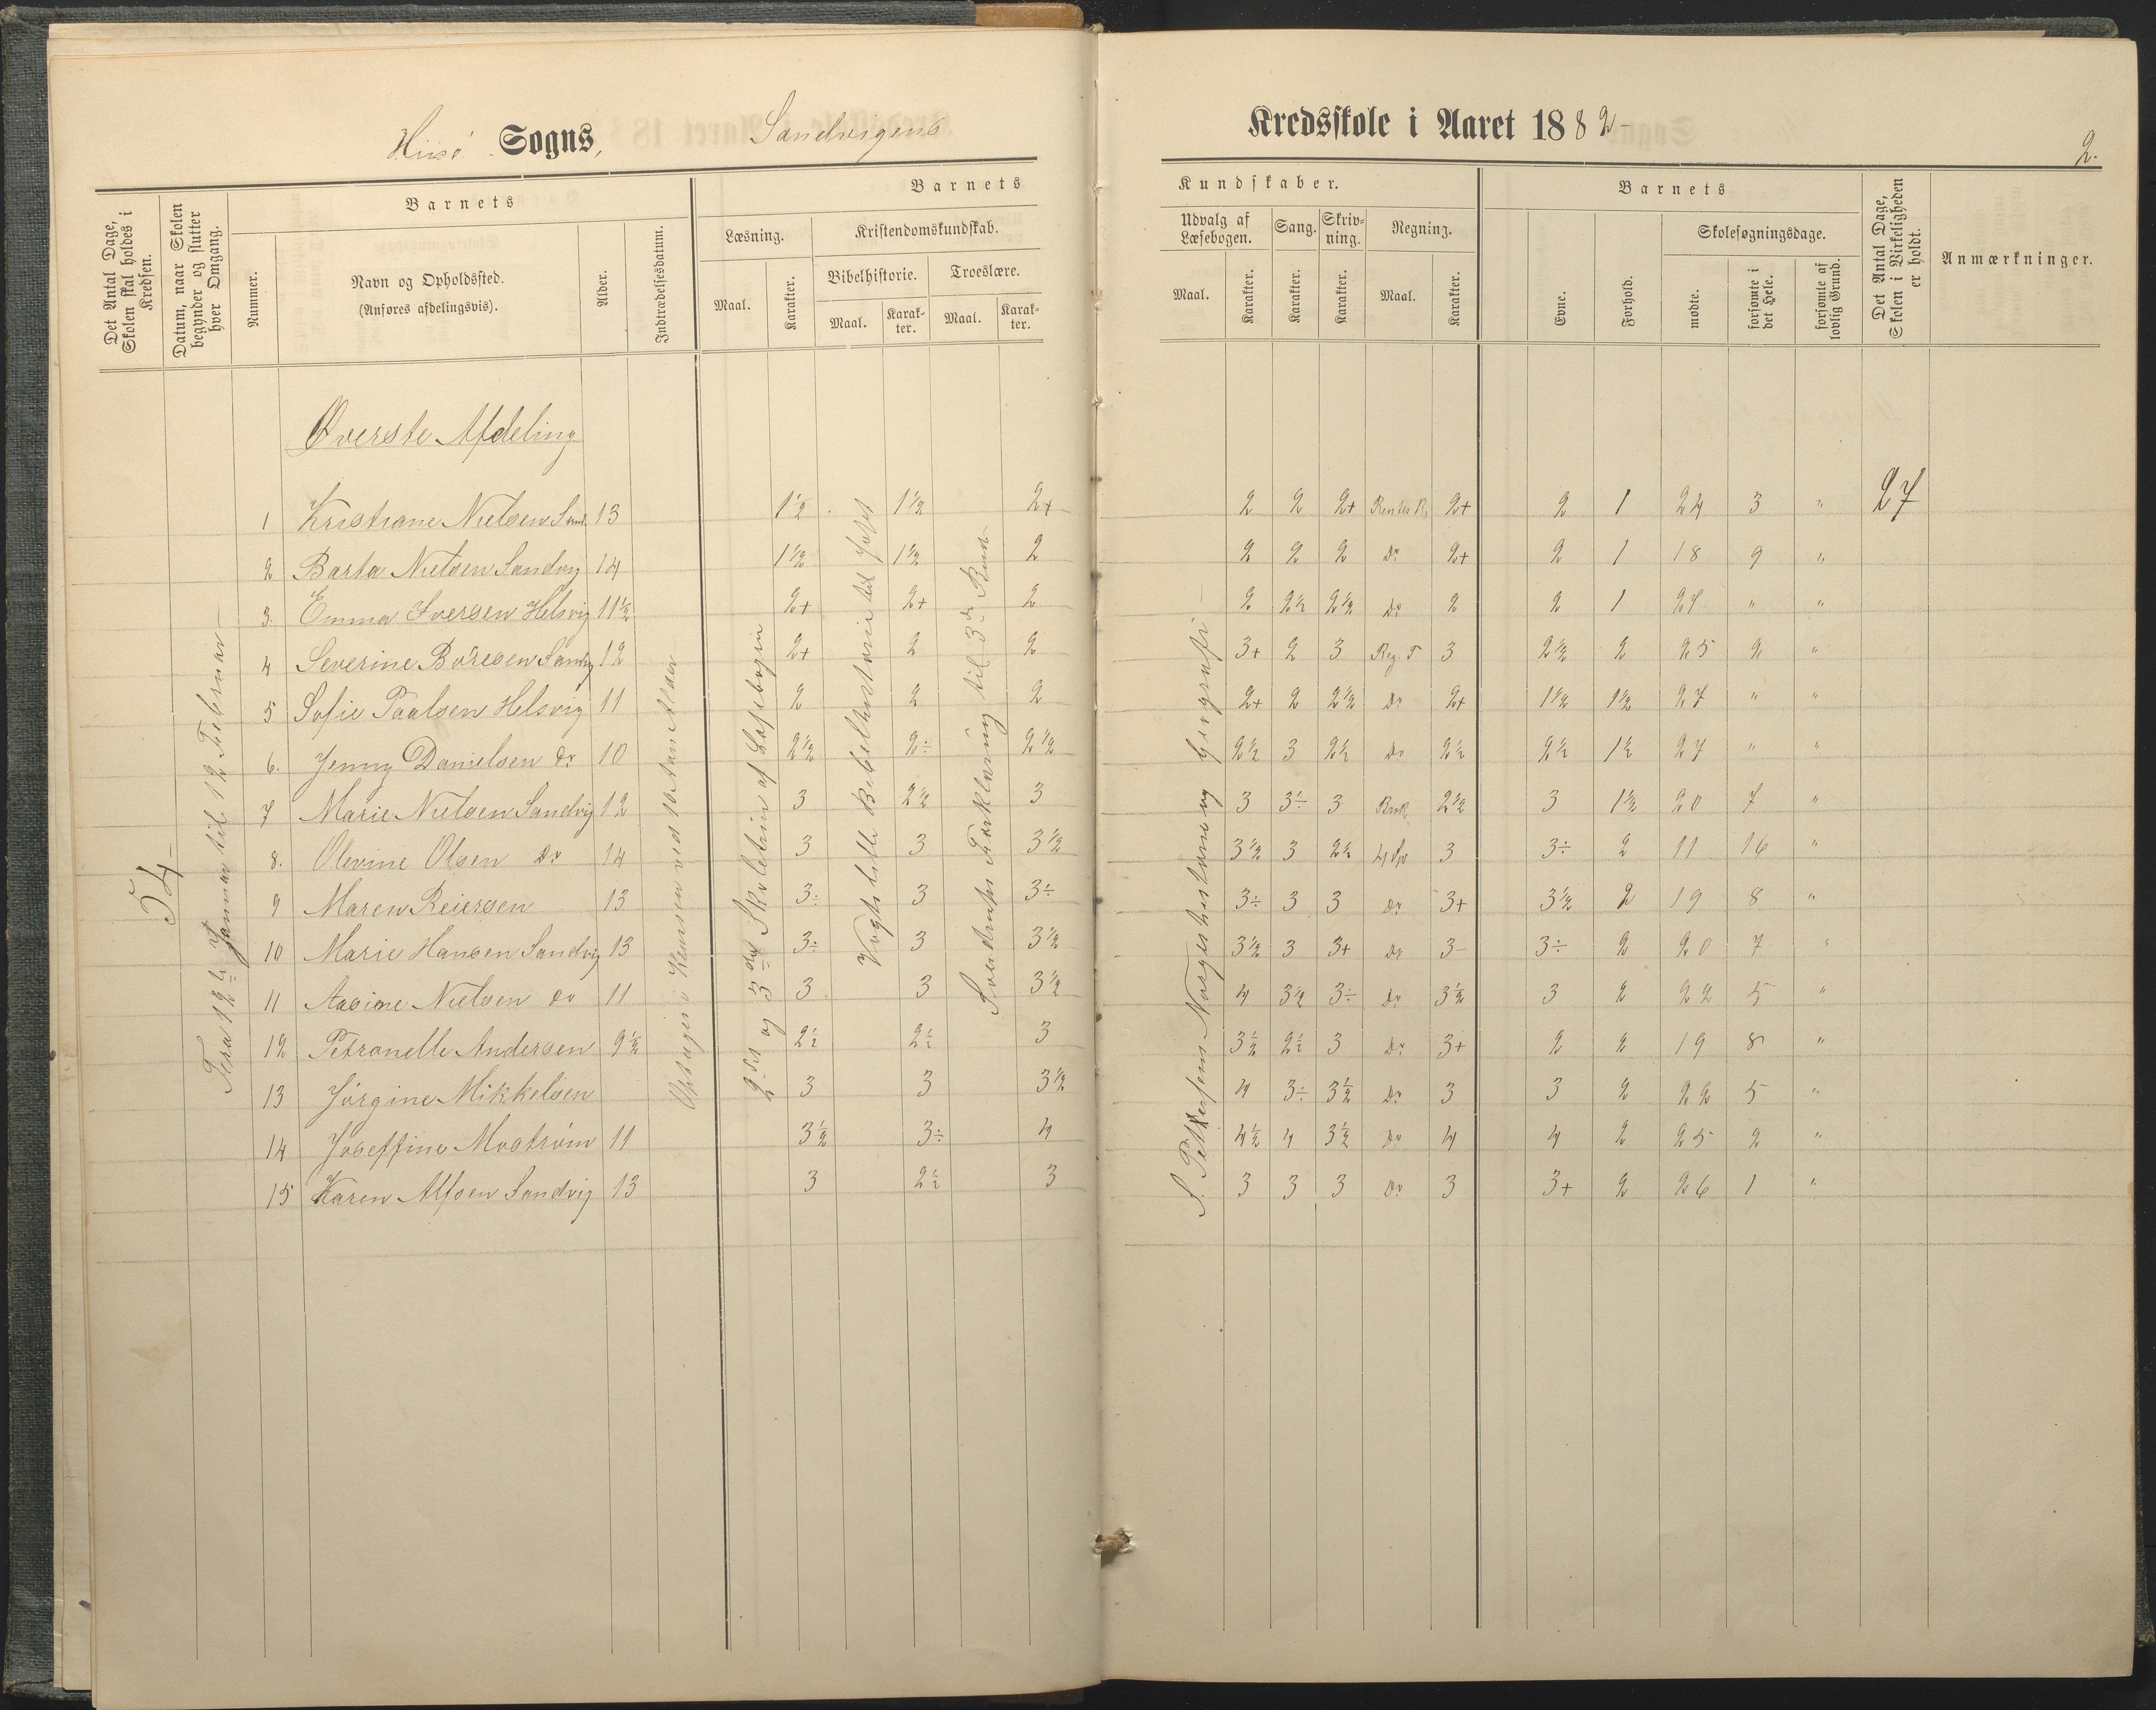 Hiisø Sogns, Sandvigens Kredsskole i Aaret 1882
2.
Det Antal Dage, Skolen skal holdes i Kredsen.
Datum, naar Skolen begynder og slutter hver Omgang.
Barnets
Nummer.
Navn og Opholdssted.
(Anføres afdelingsvis).
Alder.
Indtrædelsesdatum.
Barnets
Læsning.
Maal.
Karakter.
Kristendomskundskab.
Bibelhistorie.
Maal.
Karakter.
Troeslære.
Maal.
Karakter.
Kundskaber.
Udvalg af Læsebogen.
Maal.
Karakter.
Sang.
Karakter.
Skrivning.
Karakter.
Regning.
Maal.
Karakter.
Barnets
Evne.
Forhold.
Skolesøgningsdage.
mødte.
forsømte i det Hele.
forsømte af lovlig Grund.
Det Antal Dage, Skolen i Virkeligheden er holdt.
Anmærkninger.
54
Fra 12te Januar til 12 Februar
Optages i Klassen ved 10 Aars Alder
2det og 3die Skoletrin af Læsebogen
Vogts lille Bibelhistorie til
Sverdrups Forklaring til 3die
S. Petersens Norgeshistorie og Geografi
Øverste Afdeling
1 Kristiane Nielsen Sand. 13 1½ 1½ 2+ 2 2 2+ Rentes R. 2+ 2 1 24 3 " 27
2 Barta Nielsen Sandvig 14 1½ 1½ 2 2 2 2 Do 2+ 2 1 18 9 "
3. Emma Iversen Helsvig 11½ 2+ 2+ 2 2 2½ 2½ Do 2 2 1 27 " "
4 Severine Børesen Sandvg 12 2+ 2 2 3+ 2 3 Reg. T 3 2½ 2 25 2 "
5 Sofie Paalsen Helsvig 11 2 2 2 2+ 2 2½ Do 2+ 1½ 1½ 27 " "
6. Jenny Danielsen Do 10 2½ 2÷ 2½ 2½ 3 2½ Do 2½ 2½ 1½ 27 " "
7 Marie Nielsen Sandvig 12 3 2½ 3 3 3÷ 3 Brøk 2½ 3 1½ 20 7 "
8. Olevine Olsen Do 14 3 3 3½ 3½ 3 2½ 4 Sp 3 3÷ 2 11 16 "
9 Maren Reiersen 13 3÷ 3 3÷ 3÷ 3 3 Do 3+ 3½ 2 19 8 "
10 Marie Hansen Sandvig 13 3÷ 3 3½ 3½ 3 3+ Do 3- 3÷ 2 20 7 "
11 Aasine Nielsen Do 11 3 3 3½ 4 3½ 3÷ Do 3½ 3 2 22 5 "
12 Petronelle Andersen 9½ 2½ 2½ 3 3½ 2½ 3 Do 3+ 2 2 19 8 "
13 Jørgine Mikkelsen 3 3 3½ 4 3÷ 3½ Do 3 3 2 22 5 "
14 Joseffine Mostrøm 11 3½ 3÷ 4 4½ 4 3½ Do 4 4 2 25 2 "
15 Karen Alfsen Sandvig 13 3 2½ 3 3 3 3 Do 3 3+ 2 26 1 "